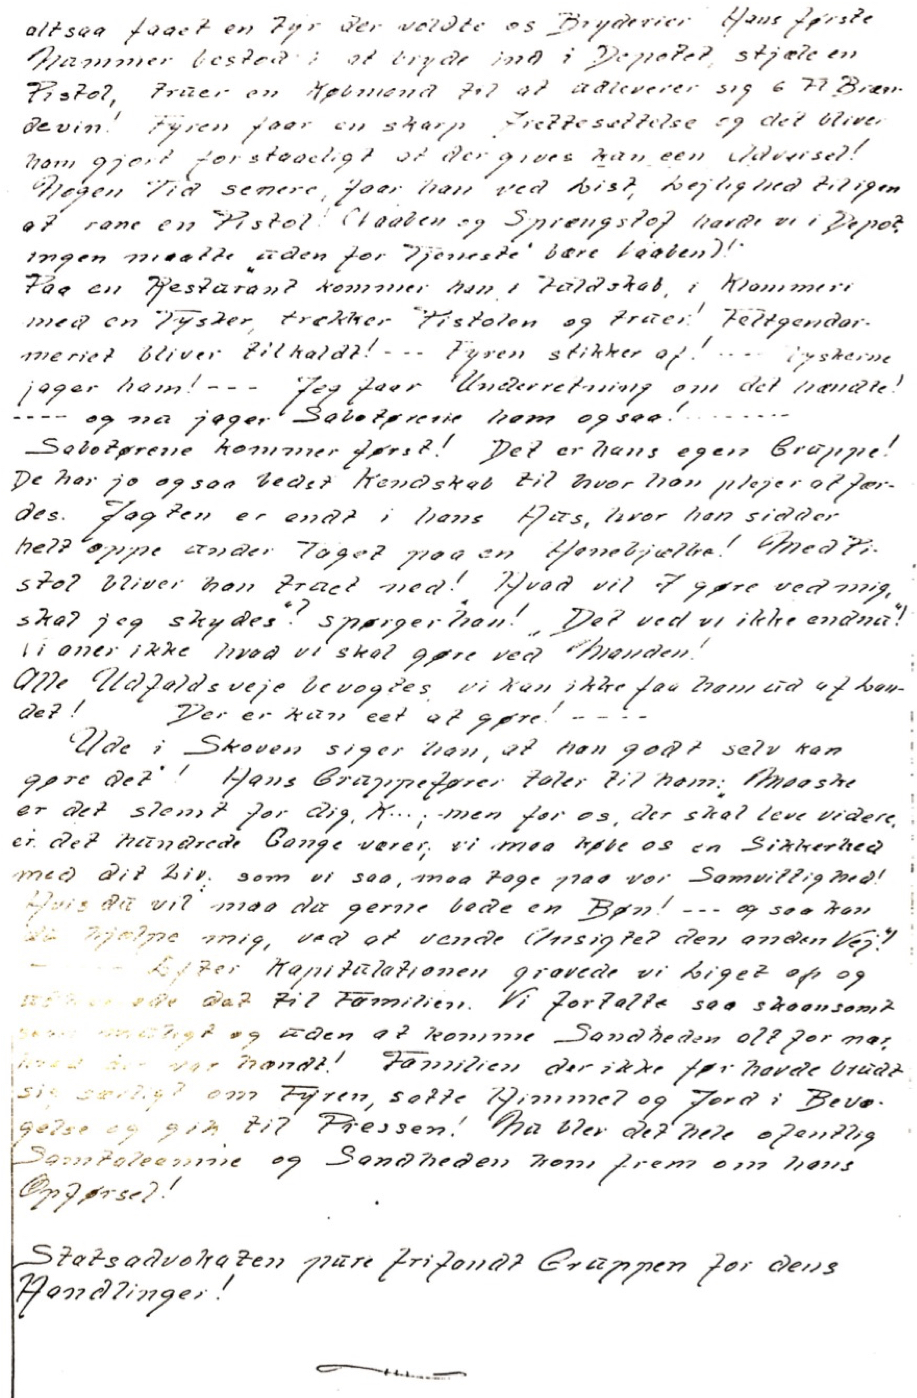 altsaa faaet en Fyr der voldte os Bryderier. Hans første
Nummer bestod i at bryde ind i Depotet, stjæle en
Pistol, truer en Købmand til at udleverer sig 6 Fl Bræn-
devin! Fyren faar en skarp Irettesættelse og det bliver
ham gjort forstaaeligt at der gives kun een Advarsel!
Nogen Tid senere, faar han ved List, Lejlighed til igen
at rane en Pistol! (Vaaben og Sprængstof havde vi i Depot,
ingen maatte uden for Tjeneste bære Vaaben)!
Paa en Restaurant kommer han i Fuldskab, i Klammeri
med en Tysker, trækker Pistolen og truer! Feltgendar-
meriet bliver tilkaldt! --- Fyren stikker af! ---- Tyskerne
jager ham! --- Jeg faar Underretning om det hændte!
---- og nu jager Sabotørerne ham ogsaa! --------
Sabotørene kommer først! Det er hans egen Gruppe!
De har jo ogsaa bedst Kendskab til hvor han plejer at fær-
des. Jagten er endt i hans Hus, hvor han sidder
helt oppe under Taget paa en Hanebjælke! Med Pi-
stol bliver han truet ned! "Hvad vil I gøre ved mig,
skal jeg skydes"? spørger han! "Det ved vi ikke endnu"!
Vi aner ikke hvad vi skal gøre ved Manden!
Alle Udfaldsveje bevogtes, vi kan ikke faa ham ud af Lan-
det! Der er kun eet at gøre! ----
Ude i Skoven siger han, at han godt selv kan
gøre det! Hans Gruppefører taler til ham: "Maaske
er det slemt for dig, K...; men for os, der skal leve videre,
er det hundrede Gange værer; vi maa købe os en Sikkerhed
med dit Liv; som vi saa, maa tage paa vor Samvittighed!
Hvis du vil maa du gerne bede en Bøn! --- og saa kan
du hjælpe mig, ved at vende Ansigtet den anden Vej"!
- --- Efter Kapitulationen gravede vi Liget op og
det til Familien. Vi fortalte saa skaansomt
som muligt og uden at komme Sandheden alt for nær,
hvad der var hændt! Familien der ikke før havde brudt
sig særligt om Fyren, satte Himmel og Jord i Bevæ-
gelse og gik til Pressen! Nu blev det hele ofentlig
Samtaleemne og Sandheden kom frem om hans
Opførsel!
Statsadvokaten pure frifandt Gruppen for dens
Handlinger!